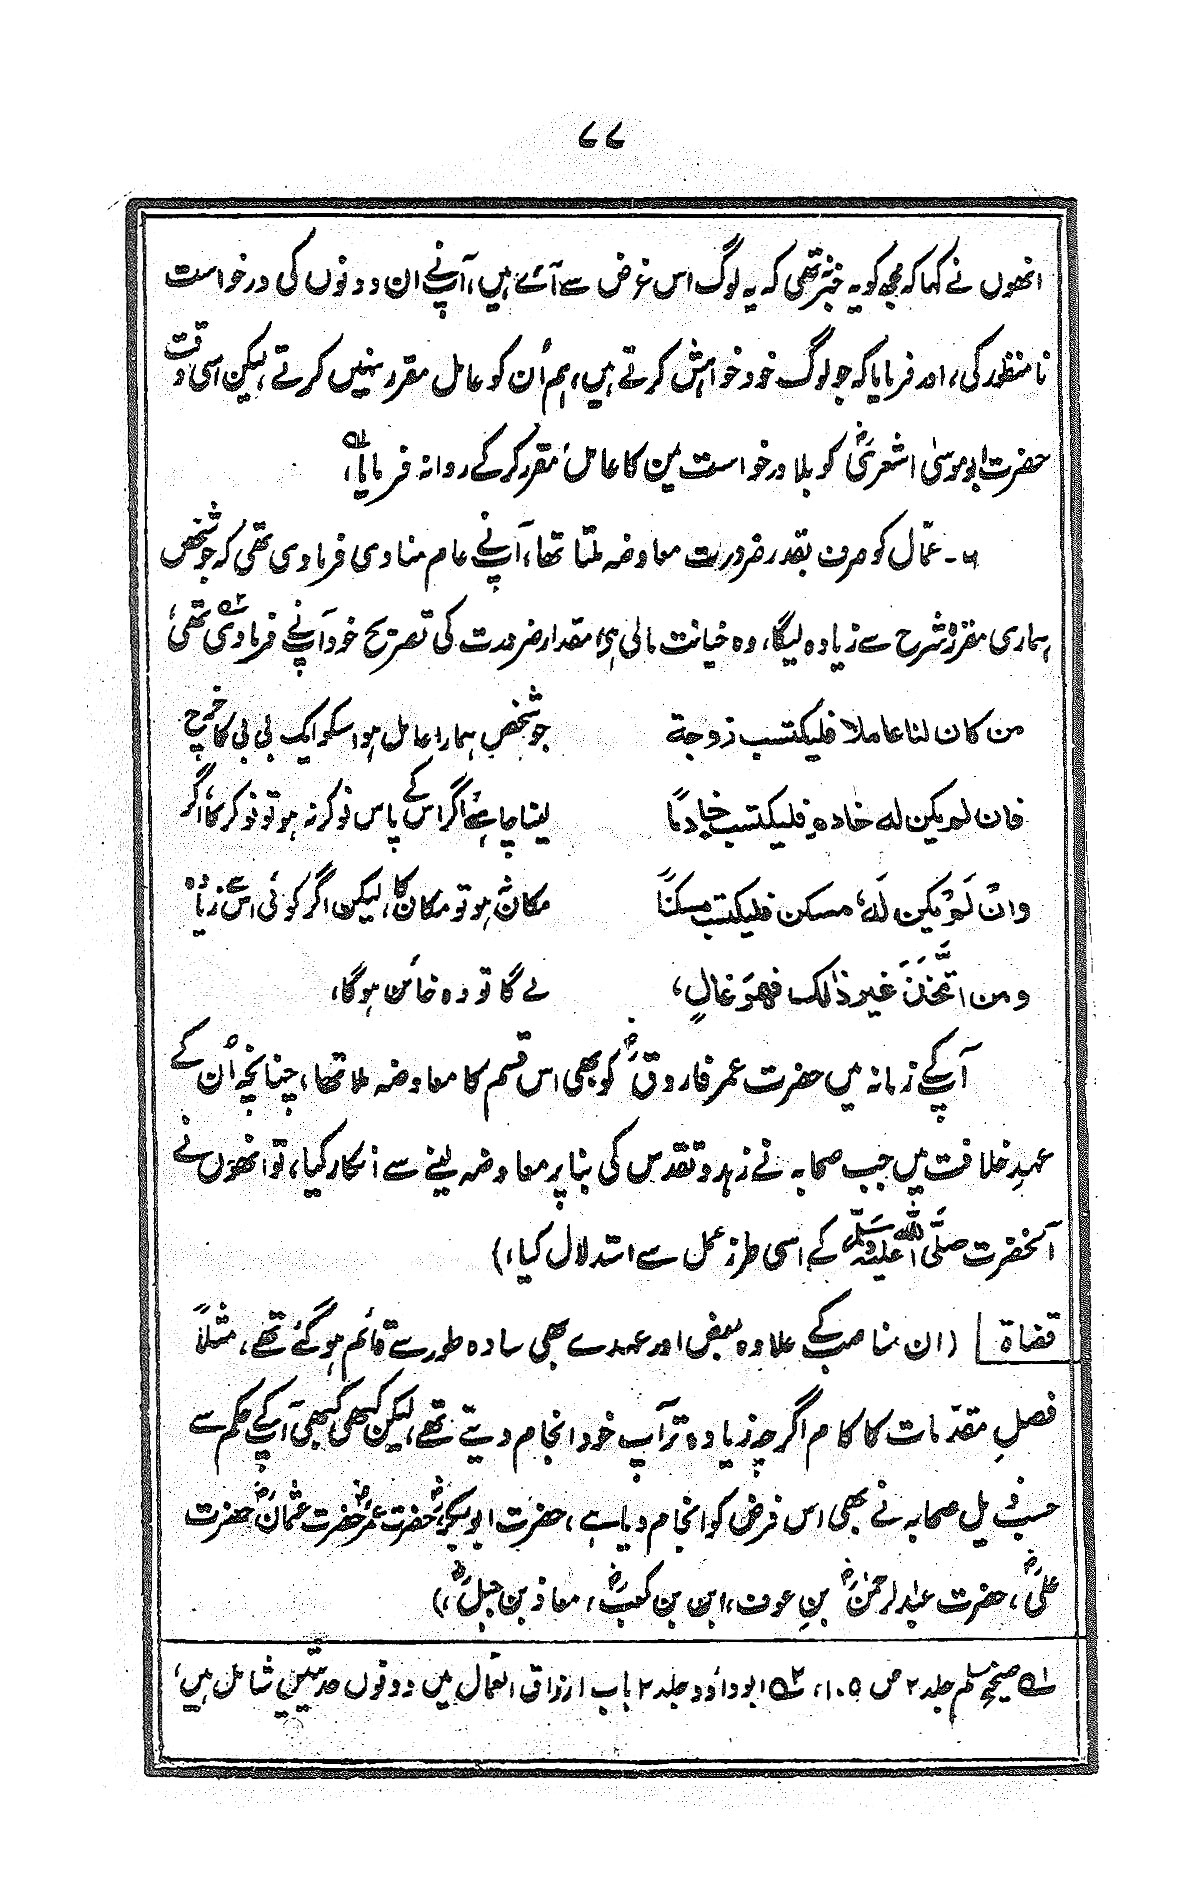 ۷۷
انھوں نے کہا کہ مجھ کو یہ خبر تھی کہ یہ لوگ اس غرض سے آئے ہیں، آپنے ان دونوں کی درخواست
نامنظور کی، اور فرمایا کہ جو لوگ خود خواہش کرتے ہیں، ہم اُن کو عامل مقرر نہیں کرتے، لیکن اسی وقت
حضرت ابو موسیٰ اشعریؓ کو بلا درخواست یمن کا عامل مقرر کرکے روانہ فرمایا،
۶- عمّال کو صرف بقدر ضرورت معاوضہ ملتا تھا، آپنے عام منادی فرمادی تھی کہ جو شخص
ہماری مقررہ شرح سے زیادہ لیگا، وہ خیانت مالی ہی، مقدار ضرورت کی تصریح خود آپنے فرمادی تھی،
من کان لنا عاملا فلیکتسب زوجة
جو شخص ہمارا عامل ہو اسکو ایک بی بی کا خرچ
فان لم یکن له خادم فلیکتسب خادمًا
لینا چاہئے اگر اس کے پاس نوکر نہ ہو تو نوکر کا، اگر
وان لَم یکن لَهٗ مسکن فلیکتسب مسکنًا
مکان نہ ہو تو مکان کا، لیکن اگر کوئی اس سے زیادہ
ومن اتَّخَذَ غیر ذٰلک فهوَ غالٍ،
لے گا تو وہ خائن ہوگا،
آپکے زمانہ میں حضرت عمر فاروقؓ کو بھی اس قسم کا معاوضہ ملا تھا، چنانچہ اُن کے
عہدِ خلافت میں جب صحابہ نے زہد و تقدس کی بنا پر معاوضہ لینے سے انکار کیا، تو انھوں نے
آنحضرت صلَّی اللہ علیہ وسلَّم کے اسی طرز عمل سے استدلال کیا،)
قضاة (ان مناصب کے علاوہ بعض اور عہدے بھی سادہ طور سے قائم ہوگئے تھے، مثلاً
فصلِ مقدّمات کا کام اگرچہ زیادہ تر آپ خود انجام دیتے تھے، لیکن کبھی کبھی آپکے حکم سے
حسب ذیل صحابہ نے بھی اس فرض کو انجام دیا ہے، حضرت ابوبکرؓ، حضرت عمرؓ، حضرت عثمانؓ، حضرت
علیؓ، حضرت عبدالرحمٰنؓ بنِ عوف، ابی بن کعبؓ، معاذ بن جبلؓ،)
لہ۱ صحیح مسلم جلد ۲ ص ۱۰۵، لہ۲ ابوداؤد جلد ۲ باب ارزاق العمال میں دونوں حدیثیں شامل ہیں،